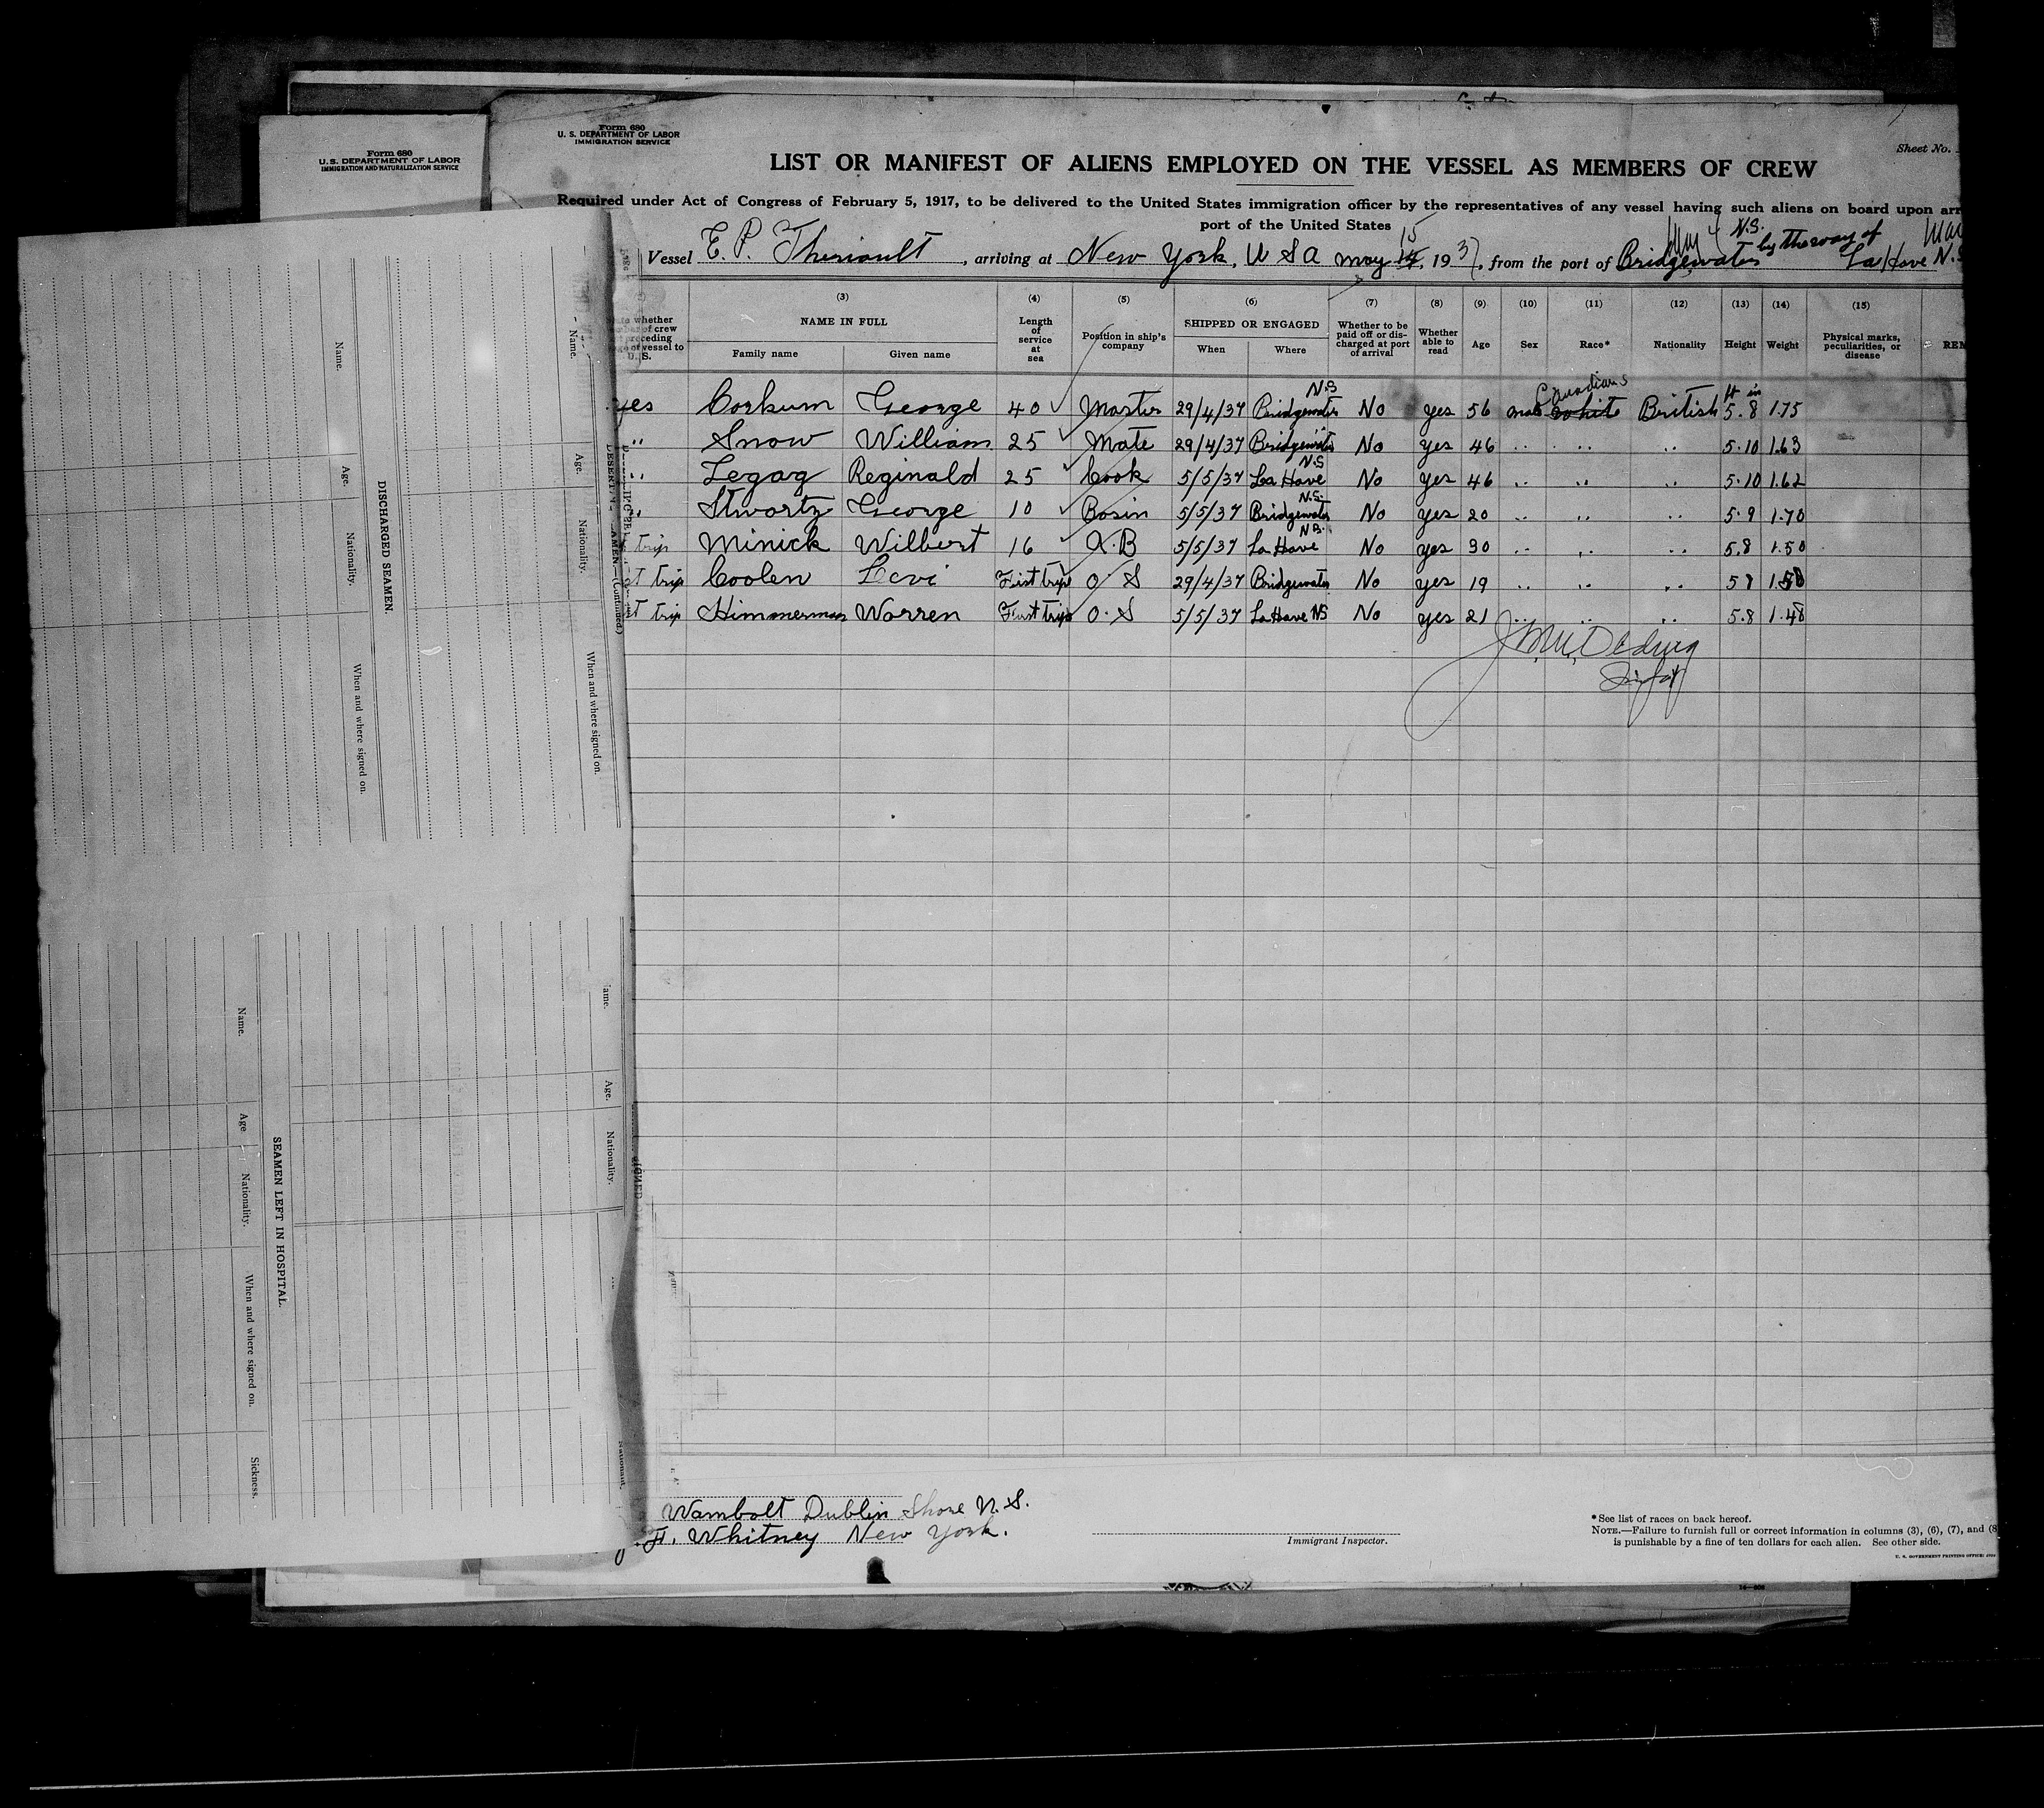 Form 680
U. S. DEPARTMENT OF LABOR
IMMIGRATION AND NATURALIZATION SERVICE
Form 680
U. S. DEPARTMENT OF LABOR
IMMIGRATION SERVICE
Sheet No.
LIST OR MANIFEST OF ALIENS EMPLOYED ON THE VESSEL AS MEMBERS OF CREW
Required under Act of Congress of February 5, 1917, to be delivered to the United States immigration officer by the representatives of any vessel having such aliens on board upon arr
port of the United States
Vessel E. P. Theriault, arriving at New York, U S A May 15 14, 1937, from the port of Bridgewater N.S. by the way of La Have N.S
(3) (4) (5) (6) (7) (8) (9) (10) (11) (12) (13) (14) (15)
whether of crew preceding of vessel to U. S.
NAME IN FULL Family name Given name
Length of service at sea
Position in ship's company
SHIPPED OR ENGAGED When Where
Whether to be paid off or discharged at port of arrival
Whether able to read
Age
Sex
Race*
Nationality
Height
Weight
Physical marks, peculiarities, or disease
REM
yes Corkum George 40 Master 29/4/37 Bridgewater N.S No yes 56 male white Canadians British 5.8 ft in 1.75
" Snow William 25 Mate 29/4/37 Bridgewater " No yes 46 " " " 5.10 1.63
" Legag Reginald 25 Cook 5/5/37 La Have N.S No yes 46 " " " 5.10 1.62
" Stwartz George 10 Bosin 5/5/37 Bridgewater N.S. No yes 20 " " " 5.9 1.70
trip Minick Wilbert 16 A.B 5/5/37 La Have N.S. No yes 30 " " " 5.8 1.50
st trip Coolen Levi First trip O S 29/4/37 Bridgewater No yes 19 " " " 5 7 1.50
st trip Himmerman Warren First trip O.S 5/5/37 La Have NS No yes 21 " " " 5.8 1.48
DISCHARGED SEAMEN.
Name. Age. Nationality. When and where signed on.
Name. Age. Nationality. When and where signed on.
DESERTING SEAMEN (Continued.)
SEAMEN LEFT IN HOSPITAL.
Name. Age Nationality. When and where signed on. Sickness.
ame. Age. Nationality.
Wambolt Dublin Shore N.S.
F. Whitney New York.
Immigrant Inspector.
*See list of races on back hereof.
NOTE.—Failure to furnish full or correct information in columns (3), (6), (7), and (8
is punishable by a fine of ten dollars for each alien. See other side.
U. S. GOVERNMENT PRINTING OFFICE: